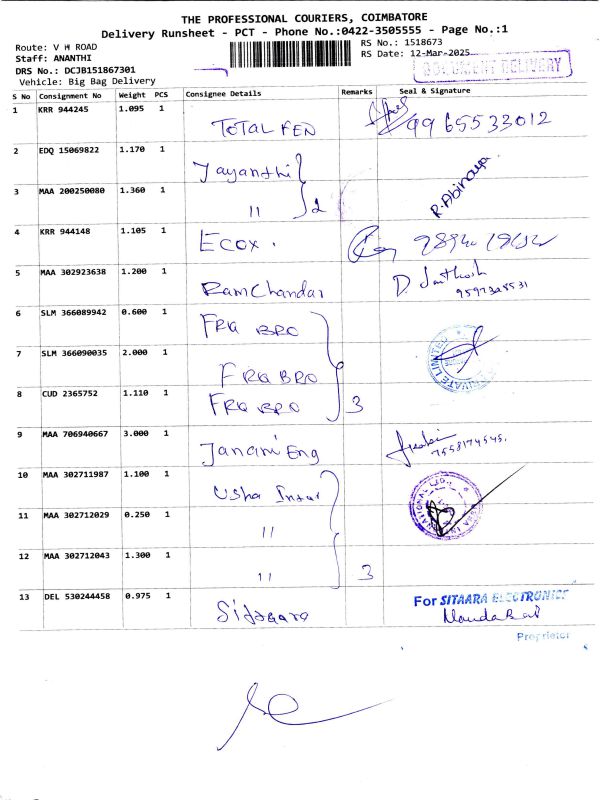 THE PROFESSIONAL COURIERS, COIMBATORE
Delivery Runsheet - PCT - Phone No.:0422-3505555 - Page No.:1
Route: V H ROAD
Staff: ANANTHI
DRS No.: DCJB151867301
Vehicle: Big Bag Delivery
RS No.: 1518673
RS Date: 12-Mar-2025
DOCUMENT DELIVERY
S No Consignment No Weight PCS Consignee Details Remarks Seal & Signature
1 KRR 944245 1.095 1 TOTAL FEN 9965533012
2 EDQ 15069822 1.170 1 Jayanthi
3 MAA 200250080 1.360 1 11 2 R. Abinaya
4 KRR 944148 1.105 1 Ecox.
5 MAA 302923638 1.200 1 Ramchandar D. Santhosh
6 SLM 366089942 0.600 1 FRG BRO
7 SLM 366090035 2.000 1 FRG BRO
8 CUD 2365752 1.110 1 FRG BRO 3
9 MAA 706940667 3.000 1 Janani Eng 7558174545.
10 MAA 302711987 1.100 1 Usha Inter
11 MAA 302712029 0.250 1 11
12 MAA 302712043 1.300 1 11 3
13 DEL 530244458 0.975 1 Sitaara For SITAARA ELECTRONICS
Proprietor